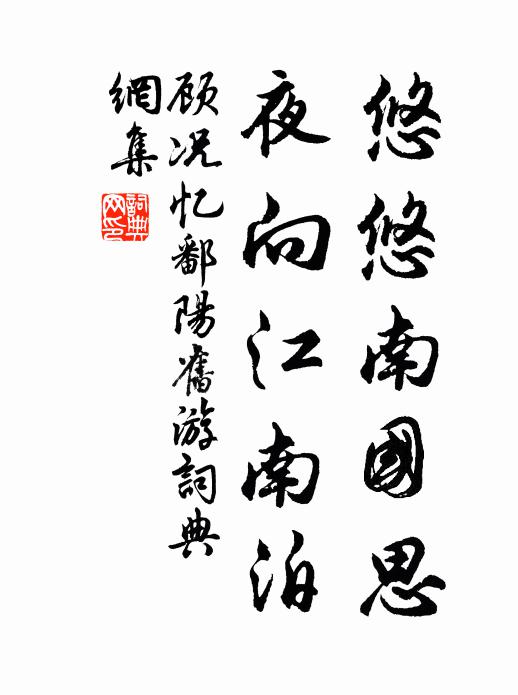 悠悠南國思
夜向江南泊
顾况忆鄱陽舊游詞典
網集
詞典网印